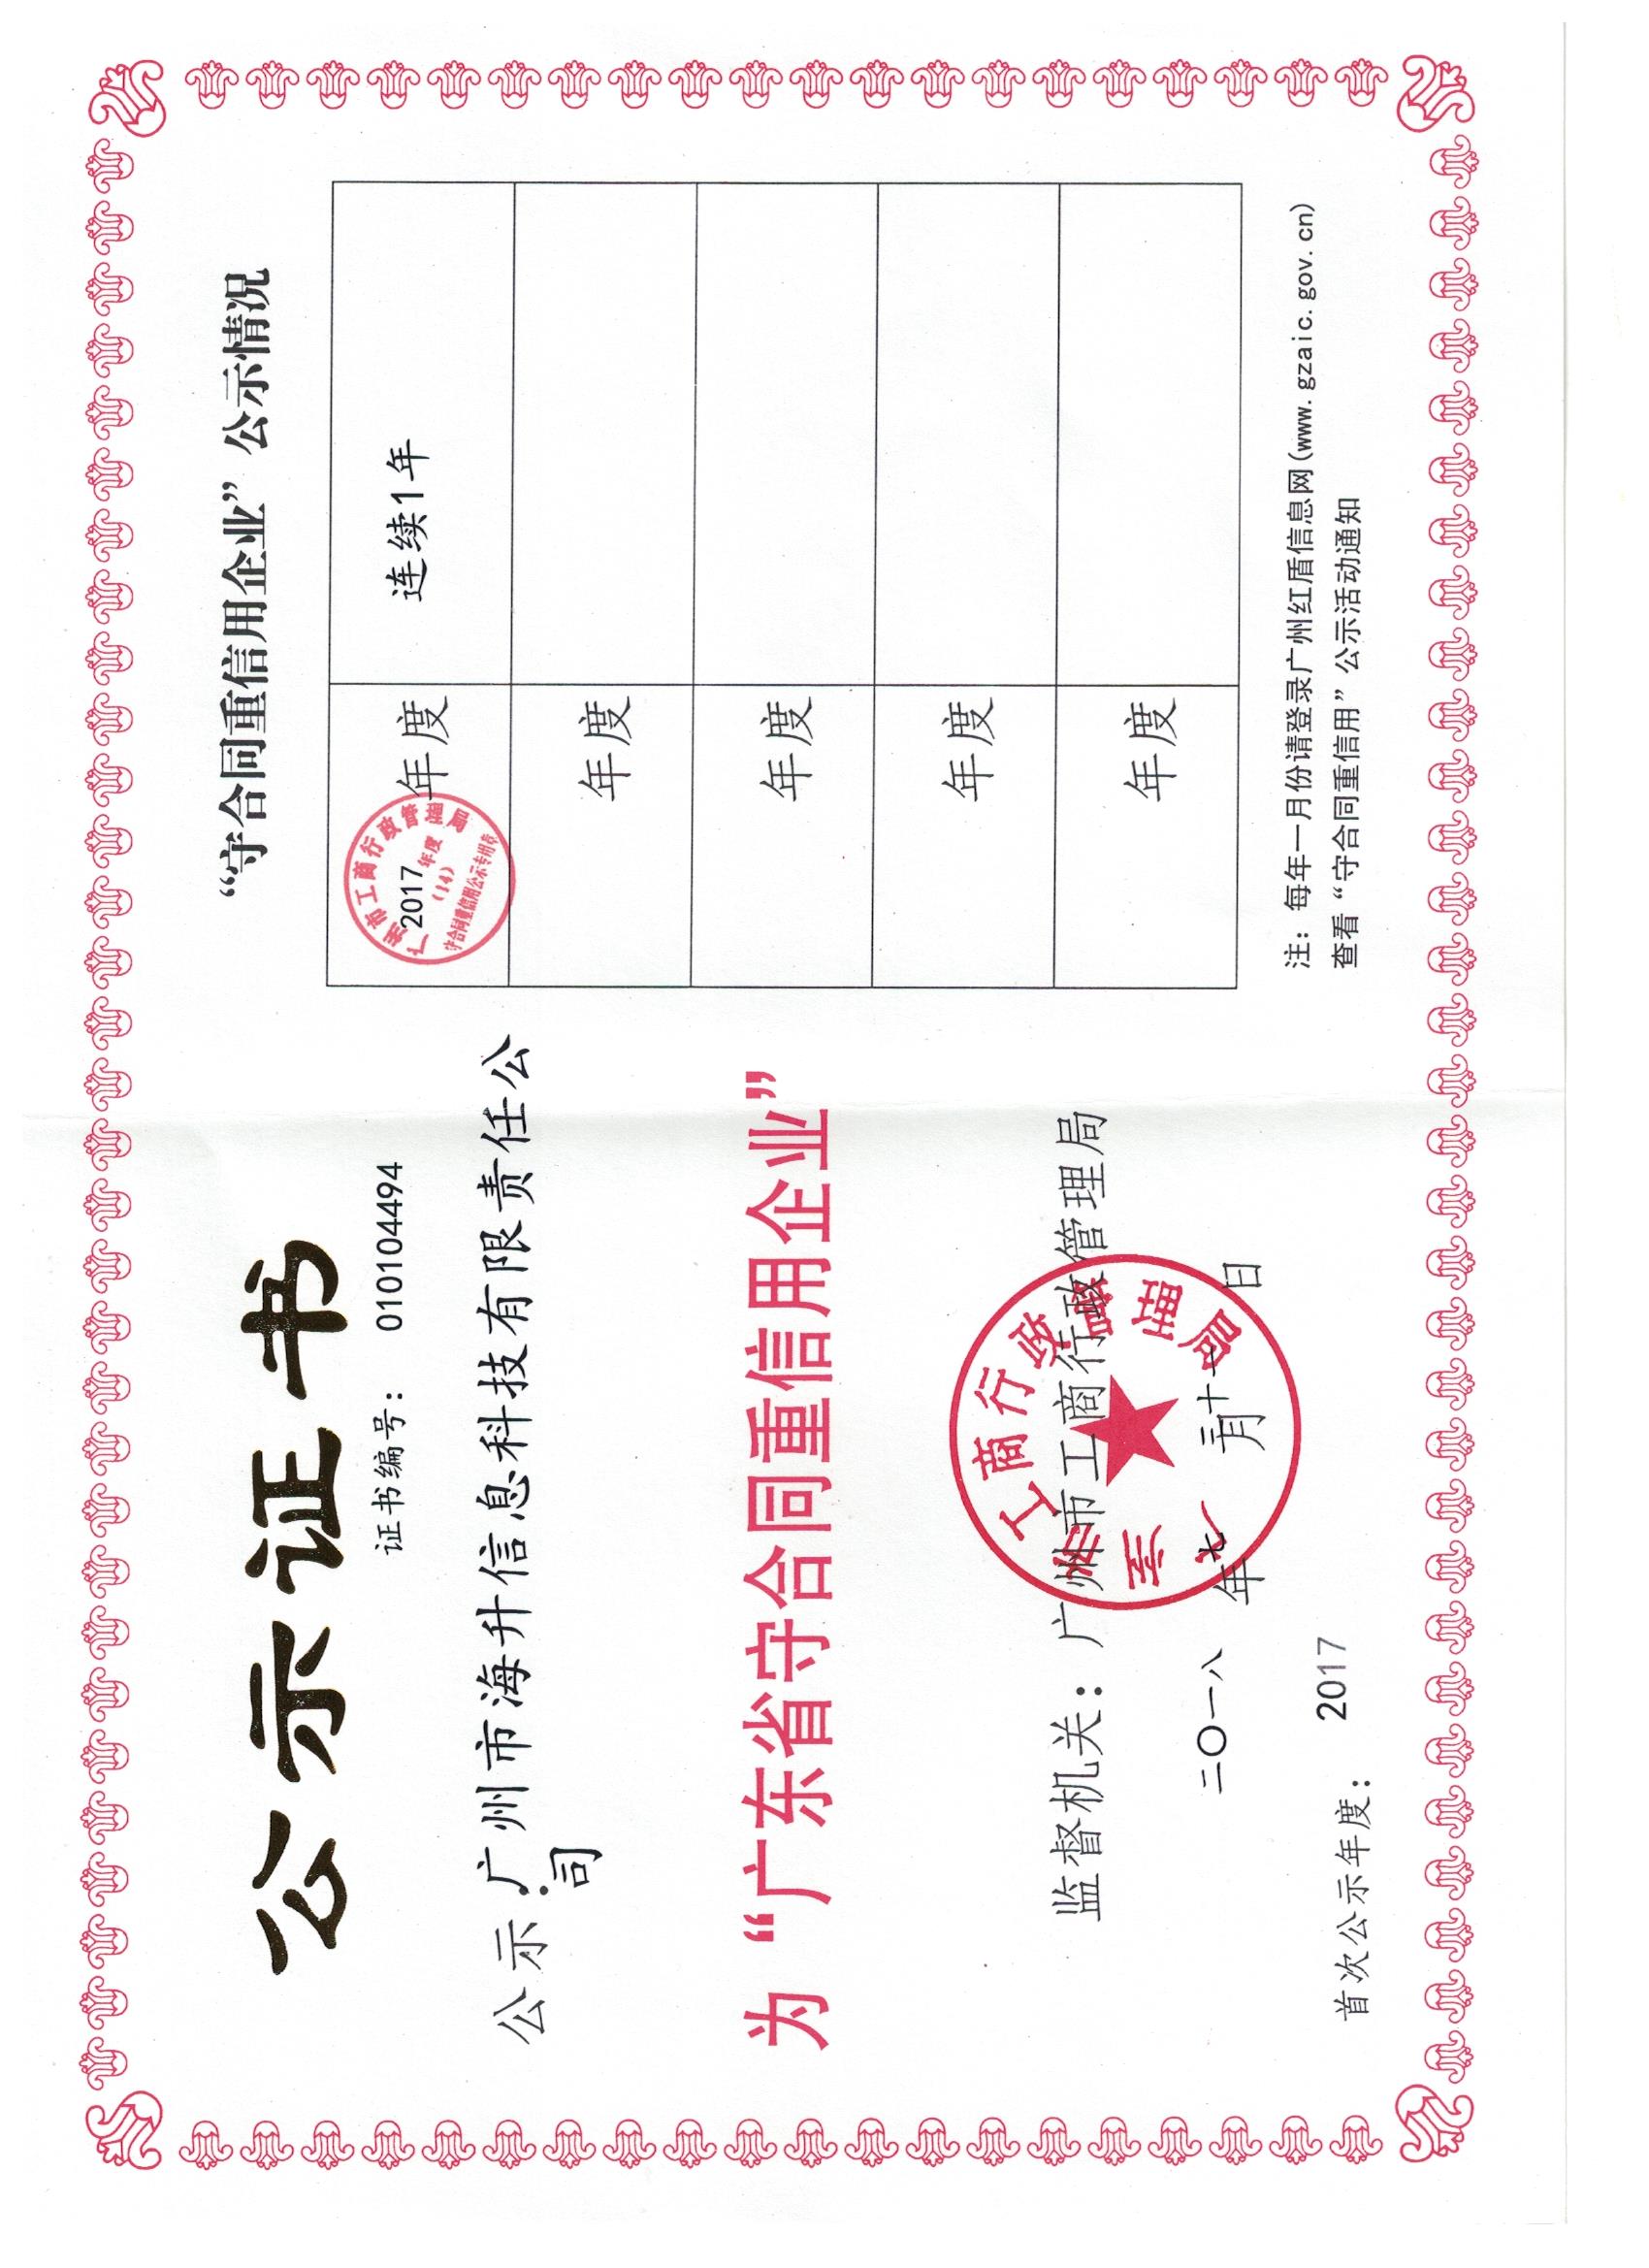 公示证书
证书编号： 010104494
公示：广州市海升信息科技有限责任公
司
为“广东省守合同重信用企业”
监督机关：广州市工商行政管理局
二〇一八年七月 日
首次公示年度： 2017
“守合同重信用企业”公示情况
广州市工商行政管理局
2017年度 连续1年
年度
(14)
守合同重信用公示专用章
年度
年度
年度
年度
注：每年一月份请登录广州红盾信息网(www.gzaic.gov.cn)
查看“守合同重信用”公示活动通知